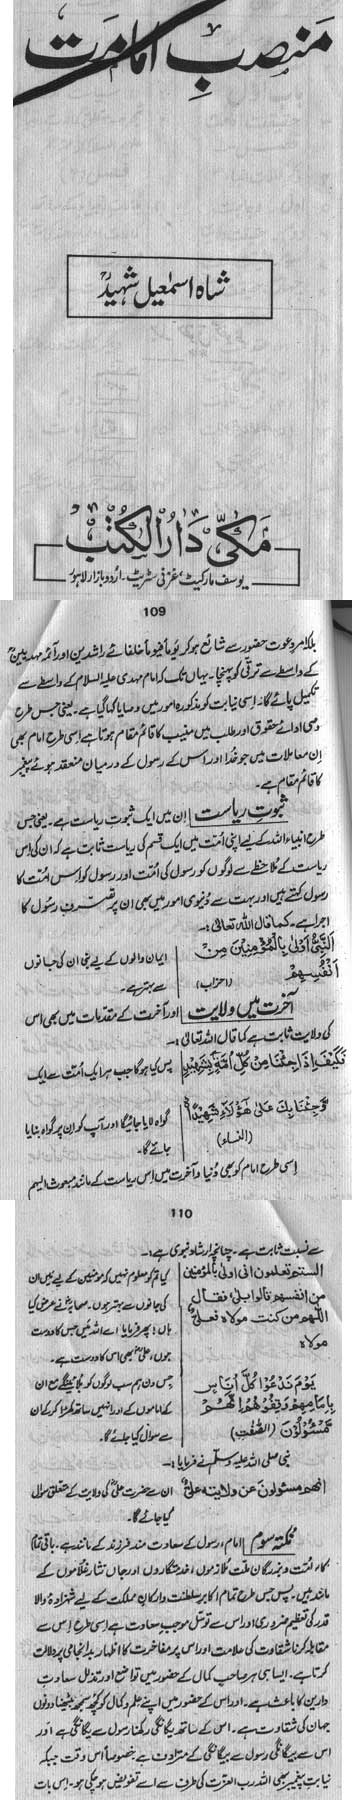 منصبِ امامت
شاہ اسمٰعیل شہیدؒ
مکی دارالکتب
یوسف مارکیٹ، غزنی سٹریٹ۔ اردو بازار لاہور
109
بلکہ امر دعوت حضور سے شائع ہو کر یوماً فیوماً خلفائے راشدین اور آئمہ مہدیین
کے واسطے سے ترقی کو پہنچا۔ یہاں تک کہ امام مہدی علیہ السلام کے واسطے سے
تکمیل پائے گا۔ اسی نیابت کو مذکورہ امور میں وصایا کہا گیا ہے۔ یعنی جس طرح
وصی ادائے حقوق اور طلب میں منیب کا قائم مقام ہوتا ہے اسی طرح امام بھی
ان معاملات میں جو خدا اور اس کے رسول کے درمیان منعقد ہوئے پیغمبر
کا قائم مقام ہے۔
ثبوتِ ریاست ان میں ایک ثبوتِ ریاست ہے۔ یعنی جس
طرح انبیاء اللہ کے لیے اپنی امت میں ایک قسم کی ریاست ثابت ہے کہ ان کی اس
ریاست کے ملاحظے سے لوگوں کو رسول کی امت اور رسول کو اس امت کا
رسول کہتے ہیں اور بہت سے دنیوی امور میں بھی ان پر تصرفِ رسول کا
اجرا ہے۔ کما قال اللہ تعالیٰ:۔
اَلنَّبِیُّ اَوْلٰی بِالْمُؤْمِنِیْنَ مِنْ
اَنْفُسِهِمْ (احزاب)
ایمان والوں کے لیے نبی ان کی جانوں
سے بہتر ہے۔
آخرت میں ولایت اور آخرت کے مقدمات میں بھی اس
کی ولایت ثابت ہے کما قال اللہ تعالیٰ:۔
فَکَیْفَ اِذَا جِئْنَا مِنْ کُلِّ اُمَّةٍ بِشَهِیْدٍ
وَّجِئْنَا بِكَ عَلٰی هٰؤُلَاءِ شَهِیْدًا
(النساء)
پس کیا ہو گا جب ہر ایک امت سے ایک
گواہ لایا جائیگا اور آپ کو ان پر گواہ بنایا
جائے گا۔
اسی طرح امام کو بھی دنیا و آخرت میں اس ریاست کے مانند مبعوث الیہم
110
سے نسبت ثابت ہے۔ چنانچہ ارشاد نبوی ہے:۔
الستم تعلمون انی اولی بالمؤمنین
من انفسهم قالوا بلی فقال
اللّٰهم من کنت مولاه فعلی
مولاه
کیا تم کو معلوم نہیں کہ مومنین کے لیے میں ان
کی جانوں سے بہتر ہوں۔ صحابہؓ نے عرض کیا
ہاں! پھر فرمایا اے اللہ میں جس کا دوست
ہوں، علیؓ بھی اس کا دوست ہے۔
یَوْمَ نَدْعُوْا کُلَّ اُنَاسٍ
بِاِمَامِهِمْ وَقِفُوْهُمْ اِنَّهُمْ
مَّسْئُوْلُوْنَ (الصّٰفّٰت)
جس دن ہم سب لوگوں کو بلائینگے مع ان
کے اماموں کے اور انہیں ساتھ کھڑا کر کے ان
سے سوال کیا جائے گا۔
نبی صلی اللہ علیہ وسلم نے فرمایا:۔
انهم مسئولون عن ولایة علیؓ
ان سے حضرت علیؓ کی ولایت کے متعلق سوال
کیا جائے گا۔
نکتہ سوم امام، رسول کے سعادت مند فرزند کے مانند ہے۔ باقی تمام
اکابر امت و بزرگان ملت ملازموں، خدمتگاروں اور جاں نثار غلاموں کے
مانند ہیں۔ پس جس طرح تمام اکابر سلطنت و ارکانِ مملکت کے لیے شہزادہ والا
قدر کی تعظیم ضروری اور اس سے توسل موجب سعادت ہے اسی طرح اس سے
مقابلہ کرنا شقاوت کی علامت اور اس پر مفاخرت کا اظہار بد انجامی پر دلالت
کرتا ہے۔ ایسا ہی ہر صاحب کمال کے حضور میں تواضع اور تذلل سعادتِ
دارین کا باعث ہے۔ اور اس کے حضور میں اپنے علم و کمال کو کچھ سمجھ بیٹھنا دونوں
جہان کی شقاوت ہے۔ اس کے ساتھ یگانگی رکھنا رسول سے یگانگی ہے اور
اس سے بیگانگی رسول سے بیگانگی کے مترادف ہے خصوصاً اس وقت جبکہ
نیابتِ پیغمبر بھی اللہ رب العزت کی طرف سے اسے تفویض ہو چکی ہو۔ اس بات